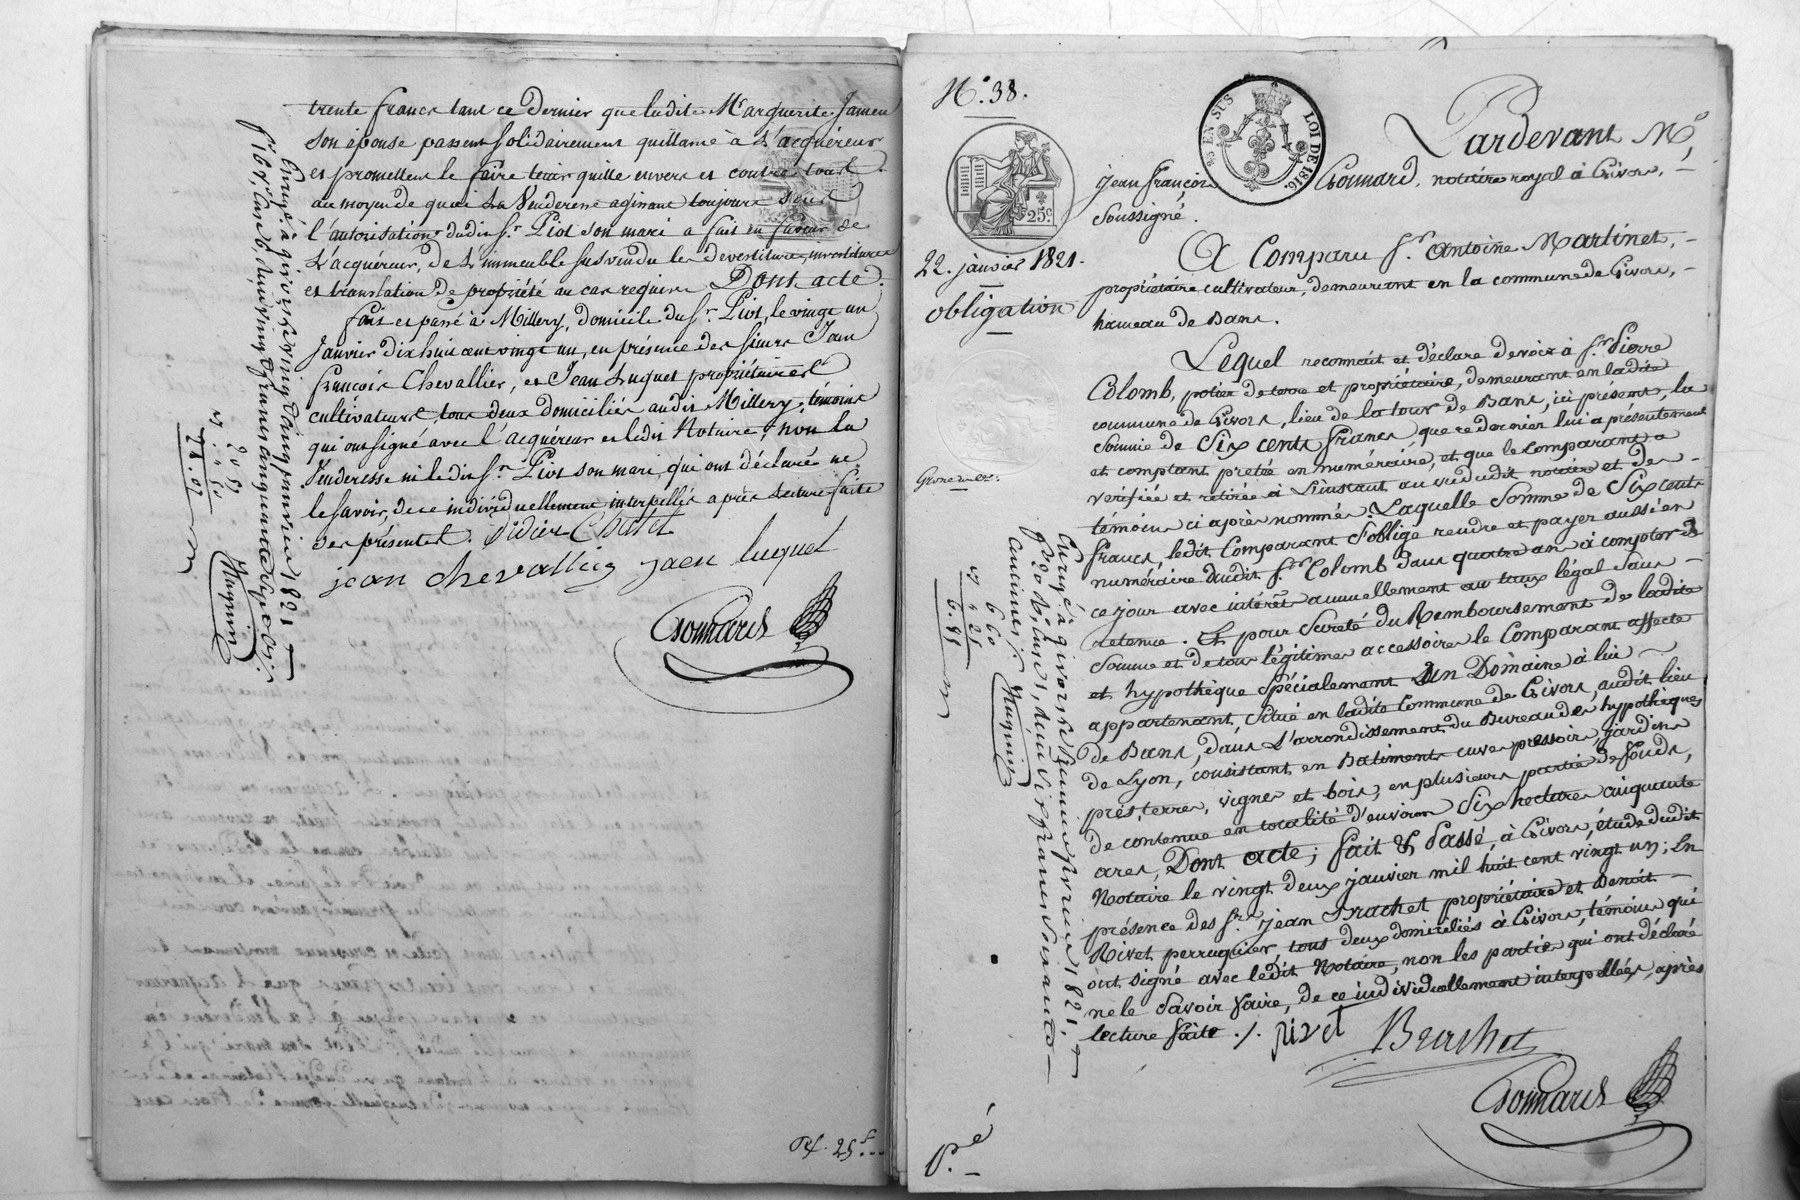 trente francs tant ce dernier que ladite Marguerite Jamen
son épouse passent solidairement quittance à l'acquéreur
et promettent le faire tenir quitte envers et contre tous.
au moyen de quoi la Venderesse agissant toujours sous
l'autorisation dudit Sr. Piot son mari a fait en faveur de
l'acquéreur, de l'immeuble susvendu les devestiture, investiture
et translation de propriété au cas requises Dont acte.
fait et passé à Millery, domicile du Sr. Piot, le vingt un
Janvier dix huit cent vingt un, en présence des sieurs Jean
françois Chevallier, et Jean Luquet propriétaires
cultivateurs, tous deux domiciliés audit Millery, témoins
qui ont signé avec l'acquéreur et ledit Notaire, non la
Venderesse ni ledit Sr. Piot son mari, qui ont déclaré ne
le savoir, de ce individuellement interpellés après lecture faite
des présentes. Didier Chatet
jean chevallier jaen luquet
Gonnard
Enregé à givors le vingt cinq janvier 1821
20 69
2 . . 0
22.
Pf. 25 f.
N°. 38.
25c.
95 EN SUS
LOI DE 1816.
22. janvier 1821.
obligation
Grosse
Pardevant Me,
jean françois Gonnard, notaire royal à Givors,
soussigné.
A Comparu Sr. Antoine Martinet,
propriétaire cultivateur, demeurant en la commune de Givors,
hameau de Bans.
Lequel reconnoit et déclare devoir à Sr. Pierre
Colomb, potier de terre et propriétaire, demeurant en ladite
commune de Givors, lieu de la tour de Bans, ici présent, la
somme de Six cents francs, que ce dernier lui a présentement
et comptant prêtée en numéraire, et que le Comparant a
vérifiée et retirée à l'instant au vu dudit notaire et des
témoins ci après nommés. Laquelle somme de Six cents
francs, ledit Comparant s'oblige rendre et payer aussi en
numéraire audit Sr. Colomb dans quatre ans à compter de
ce jour avec intérêts annuellement au taux légal sans
retenue. Et pour Sureté du Remboursement de ladite
somme et de tous légitimes accessoires le Comparant affecte
et hypothèque spécialement Un Domaine à lui
appartenant, situé en ladite Commune de Givors, audit lieu
de Bans, dans l'arrondissement du Bureau des hypothèques
de Lyon, consistant en Batiments cuves pressoir, jardins
prés, terres, vignes et bois, en plusieurs parties de fonds,
de contenue en totalité d'environ Six hectares cinquante
ares, Dont acte; fait & Passé, à Givors, étude dudit
Notaire le vingt deux janvier mil huit cent vingt un; En
présence des Srs. jean Brachet propriétaire et Benoit
Rivet, perruquier, tous deux domiciliés à Givors, témoins qui
ont signé avec ledit Notaire, non les parties qui ont déclaré
ne le savoir faire, de ce individuellement interpellées, après
lecture faite ./. rivet Brachet
Gonnard
Enregé à givors le 1821
6 60
6.
Pé.